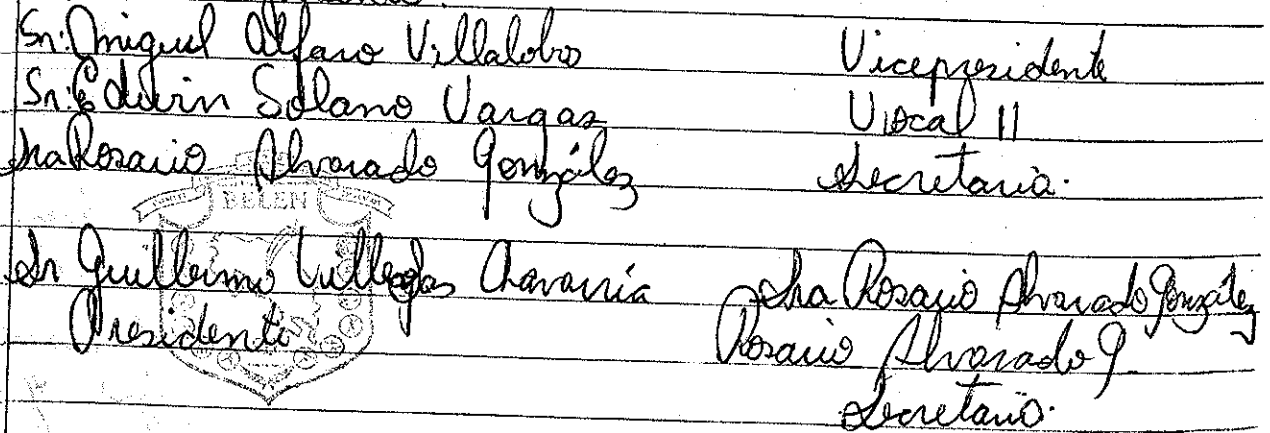 Sr. Miguel Alfaro Villalobos Vicepresidente
Sr. Edwin Solano Vargas Vocal II
Sra Rosario Alvarado González Secretaria.
BELEN
Sr Guillermo Villegas Chavarría Sra Rosario Alvarado González
Presidente Rosario Alvarado G.
Secretaria.